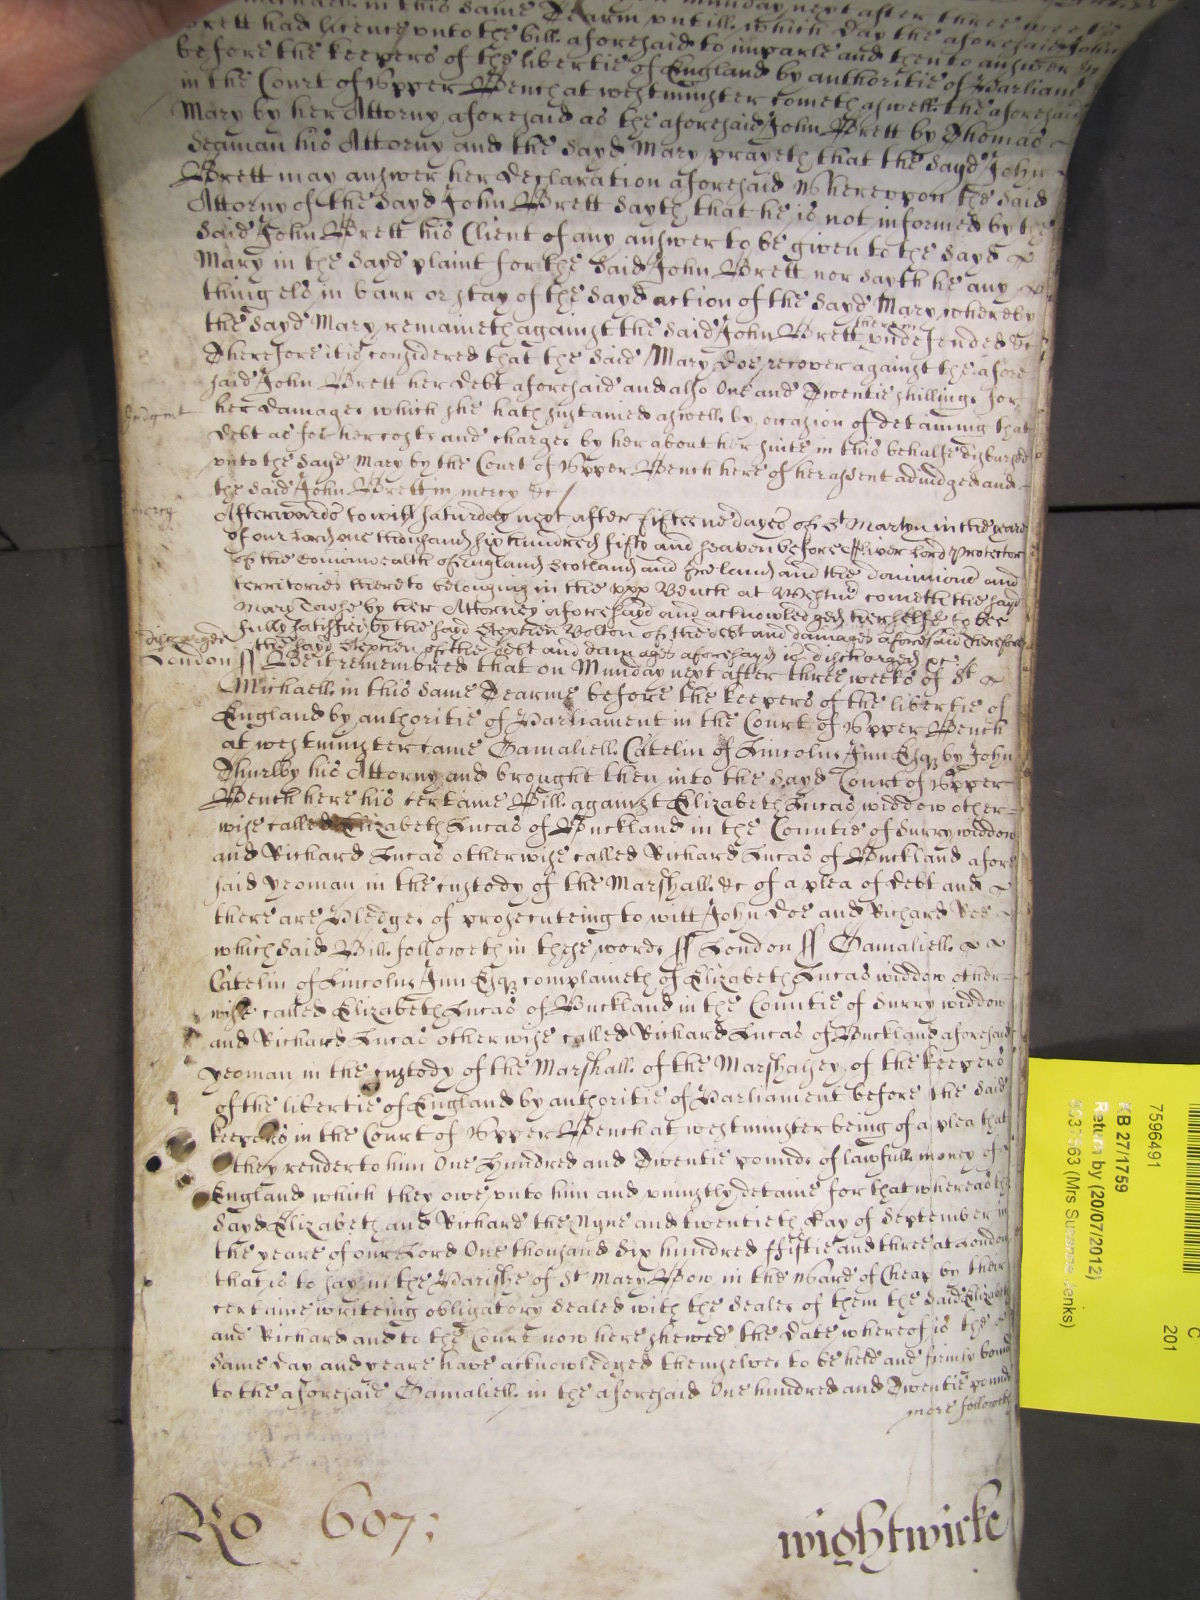 Michaell in this same Tearme untill which day the aforesaid John
Brett had licence unto the bill aforesaid to imparle and then to answer
before the keepers of the libertie of England by authoritie of Parliam
in the Court of Upper Bench at westminster cometh aswell the aforesaid
Mary by her Attorny aforesaid as the aforesaid John Brett by Thomas
his Attorny and the sayd Mary prayeth that the sayd John
Brett may answer her declaration aforesaid Whereupon the said
Attorny of the sayd John Brett sayth that he is not informed by the
said John Brett his Client of any answer to be given to the sayd
Mary in the sayd plaint for the said John Brett nor sayth he any
thing els in barr or stay of the sayd action of the sayd Mary whereby
the sayd Mary remaineth against the said John Brett therein undefended &c
Therefore it is considered that the said Mary doe recover against the afore
said John Brett her debt aforesaid and also One and Twentie shillings for
Judgmt
her damages which she hath sustained aswell by occasion of detaining that
debt as for her costs and charges by her about her suite in this behalfe disbursed
unto the sayd Mary by the Court of Upper Bench here of her assent adiudged and
the said John Brett in mercy &c
mercy
Afterwards to witt saturday next after fifteene dayes of St Martyn in the yeare
of our Lord one thousand six hundred fifty and seaven before Oliver Lord Protector
of the Comonwealth of England Scotland and Ireland and the dominions and
territories thereto belonging in the upp Bench at Westmr cometh the sayd
Mary by her Attorney aforesayd and acknowledged herselfe to bee
fully satisfied by the sayd Stephen Bolton of the debt and damages aforesaid Therefore
discharged
the sayd Stephen of the debt and damages aforesayd is discharged &c
London ss Be it remembred that on Munday next after three weeks of St
Michaell in this same Tearme before the keepers of the libertie of
England by authoritie of Parliament in the Court of Upper Bench
at westminster came Gamaliell Catelin of Lincolns Inn Esqr by John
Thurlby his Attorny and brought then into the sayd Court of Upper
Bench here his certaine Bill against Elizabeth Lucas widdow other=
wise called Elizabeth Lucas of Buckland in the Countie of Surry widdow
and Richard Lucas otherwise called Richard Lucas of Buckland afore
said yeoman in the custody of the Marshall &c of a plea of debt and
there are Pledges of prosecuteing to witt John Doe and Richard Roe
which said Bill followeth in these words ss London ss Gamaliell
Catelin of Lincolns Inn Esqr complaineth of Elizabeth Lucas widdow other=
wise called Elizabeth Lucas of Buckland in the Countie of Surry widdow
and Richard Lucas otherwise called Richard Lucas of Buckland aforesaid
yeoman in the custody of the Marshall of the Marshalsey of the keepers
of the libertie of England by authoritie of Parliament before the said
keepers in the Court of Upper Bench at westminster being of a plea that
they render to him One Hundred and Twentie pounds of lawfull money of
England which they owe unto him and uniustly detaine for that whereas the
sayd Elizabeth and Richard the Nyne and twentieth day of September in
the yeare of our Lord One thousand Six hundred ffiftie and three at London
that is to say in the Parishe of St Mary Bow in the Ward of Cheap by their
certaine writeing obligatory sealed with the seales of them the said Elizabeth
and Richard and to the Court now here shewed the date whereof is the
same day and yeare have acknowledged themselves to be held and firmly bound
to the aforesaid Gamaliell in the aforesaid One hundred and Twentie pounds
more followeth
Ro 607;
wightwicke
C
201
7596491
KB 27/1759
Return by (20/07/2012)
(Mrs Susanne Jenks)